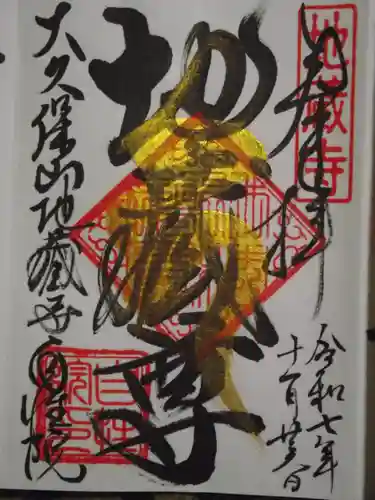 奉拝
地蔵寺
令和七年
十一月廿日
地蔵尊
大久保山地蔵寺白性院
白性院印